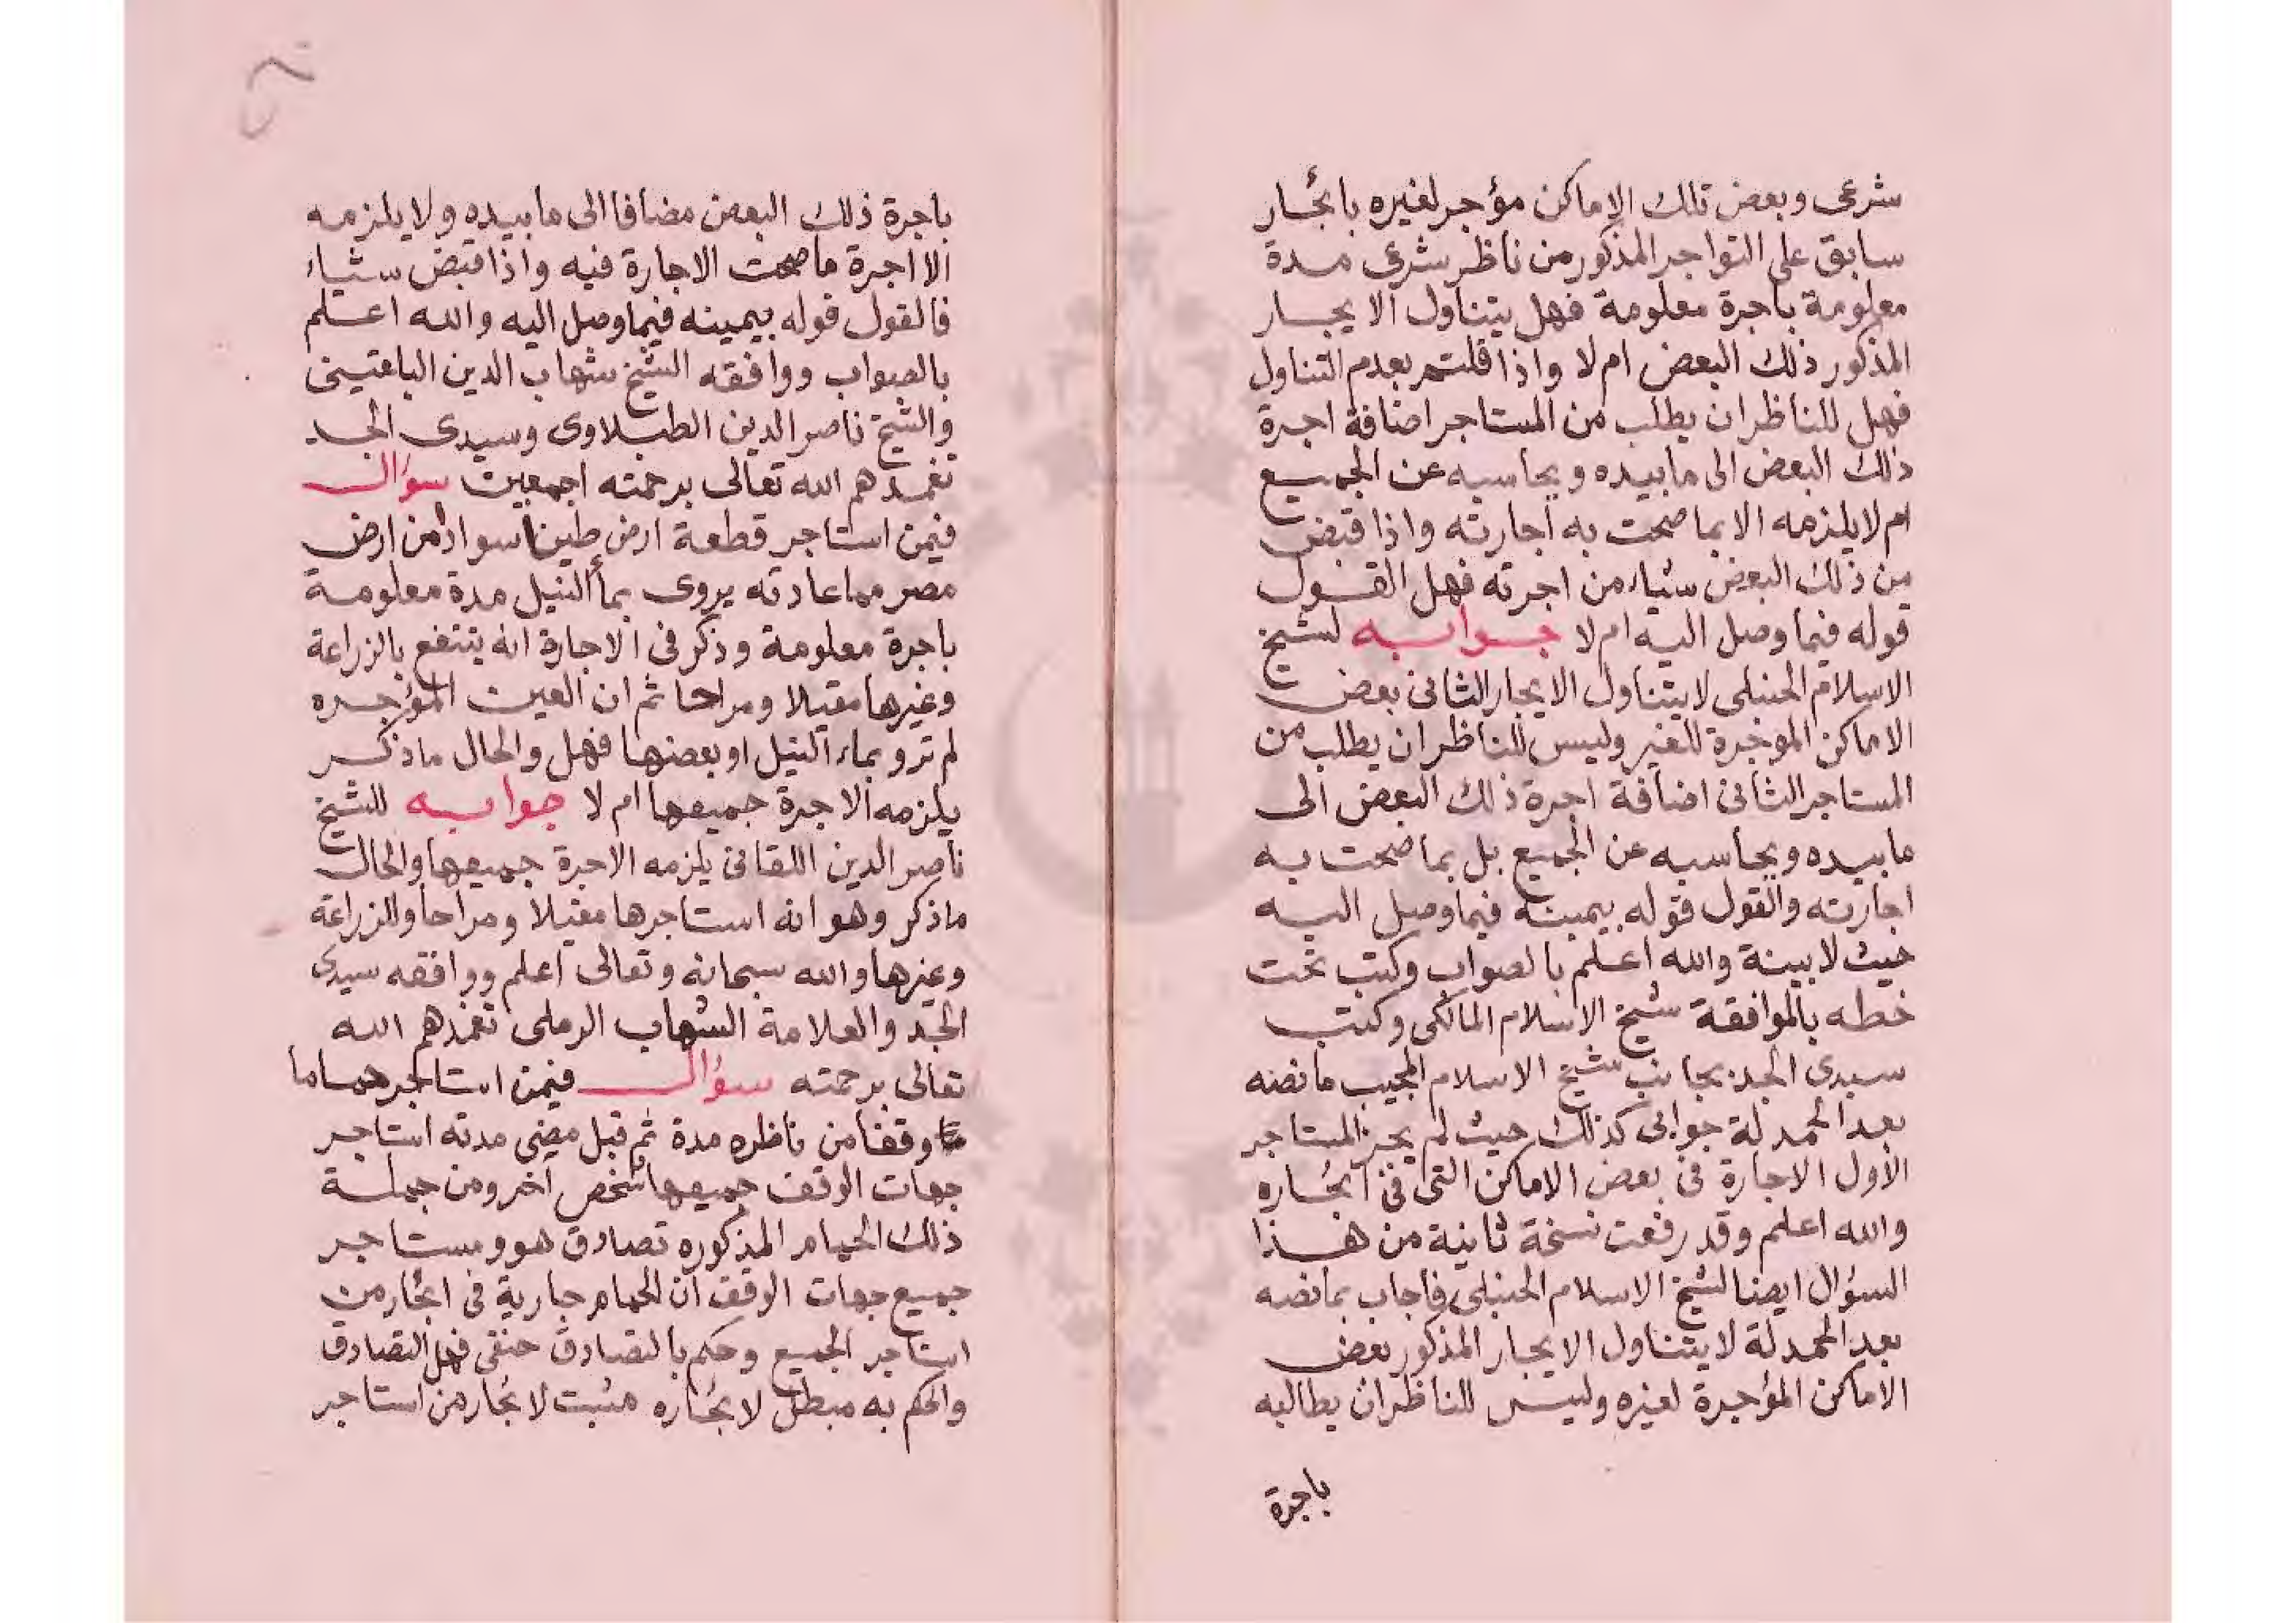 شرعى وبعض تلك الاماكن مؤجر لغيره بايجار
سابق على التواجر المذكور من ناظر شرعى مدة
معلومة باجرة معلومة فهل يتناول الايجار
المذكور ذلك البعض ام لا واذا قلتم بعدم التناول
فهل للناظر ان يطلب من المستاجر اضافة اجرة
ذلك البعض الى ما بيده ويحاسبه عن الجميع
ام لا يلزمه الا بما صحت به اجارته واذا قبض
من ذلك البعض شياء من اجرته فهل القول
قوله فيما وصل اليه ام لا جوابه لشيخ
الاسلام الحنبلى لا يتناول الايجار الثانى بعض
الاماكن الموجرة للغير وليس للناظر ان يطلب من
المستاجر الثانى اضافة اجرة ذلك البعض الى
ما بيده ويحاسبه عن الجميع بل بما صحت به
اجارته والقول قوله بيمينه فيما وصل اليه
حيث لا بينة والله اعلم بالصواب وكتب تحت
خطه بالموافقة شيخ الاسلام المالكى وكتب
سيدى الجد بجانب شيخ الاسلام المجيب ما نصه
بعد الحمدلة جوابى كذلك حيث لم يجز المستاجر
الأول الاجارة فى بعض الاماكن التى فى ايجاره
والله اعلم وقد رفعت نسخة ثانية من هذا
السؤال ايضا لشيخ الاسلام الحنبلى فأجاب بما نصه
بعد الحمدلة لا يتناول الايجار المذكور بعض
الاماكن المؤجرة لغيره وليس للناظر ان يطالبه
باجرة
باجرة ذلك البعض مضافا الى ما بيده ولا يلزمه
الا اجرة ما صحت الاجارة فيه واذا قبض شياء
فالقول قوله بيمينه فيما وصل اليه والله اعلم
بالصواب ووافقه الشيخ شهاب الدين البلقينى
والشيخ ناصر الدين الطبلاوى وسيدى الجد
تغمدهم الله تعالى برحمته اجمعين سؤال
فيمن استاجر قطعة ارض طين اسواد من ارض
مصر مما عادته يروى بمأ النيل مدة معلومة
باجرة معلومة وذكر فى الاجارة انه ينتفع بالزراعة
وغيرها مقيلا ومراحا ثم ان العين المؤجره
لم ترو بماء النيل او بعضها فهل والحال ما ذكر
يلزمه الاجرة جميعها ام لا جوابه للشيخ
ناصر الدين اللقانى يلزمه الاجرة جميعها والحال
ما ذكر وهو انه استاجرها مقيلا ومراحا والزراعة
وغيرها والله سبحانه وتعالى اعلم ووافقه سيدى
الجد والعلامة الشهاب الرملى تغمدهم الله
تعالى برحمته سؤال فيمن استاجر حماما
وقفا من ناظره مدة ثم قبل مضى مدته استاجر
جهات الوقف جميعها شخص آخر ومن جملة
ذلك الحمام المذكوره تصادق هو ومستاجر
جميع جهات الوقف ان الحمام جارية فى ايجار من
استاجر الجميع وحكم بالتصادق حنفى فهل التصادق
والحكم به مبطل لايجاره مثبت لايجار من استاجر